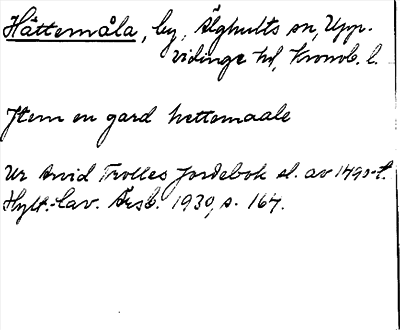 Hättemåla, by, Älghults sn, Upp-
vidinge hd, Kronob. l.
Item en gard hettemaale
Ur Arvid Trolles Jordebok sl. av 1490-t.
Hylt.-Cav. Årsb. 1930, s. 164.